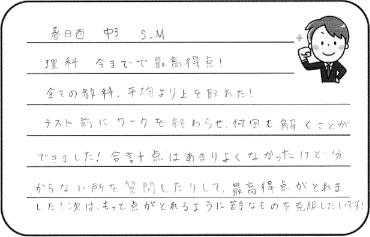 春日西 中3 S.M
理科 今までで最高得点!
全ての教科、平均より上を取れた!
テスト前にワークを終わらせ、何回も解くことが
できました!合計点はあまりよくなかったけど、分
からない所を質問したりして、最高得点がとれま
した!次は、もっと点がとれるように苦手なものを克服したいです!